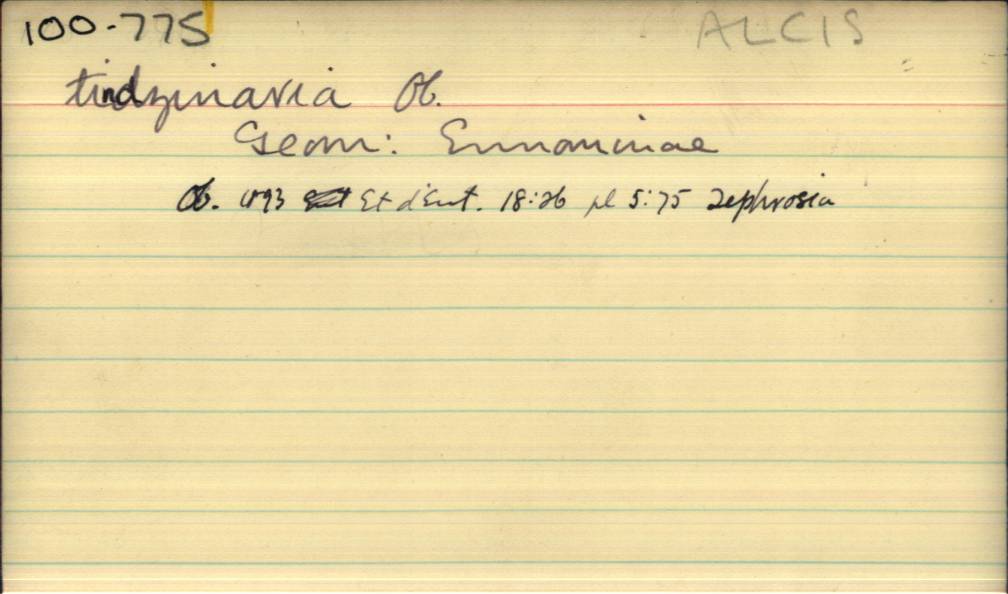 100-775 ALCIS
tindzinaria Ob.
Geom: Ennominae
Ob. 1893 Et d'Ent. 18:26 pl 5:75 Tephrosia